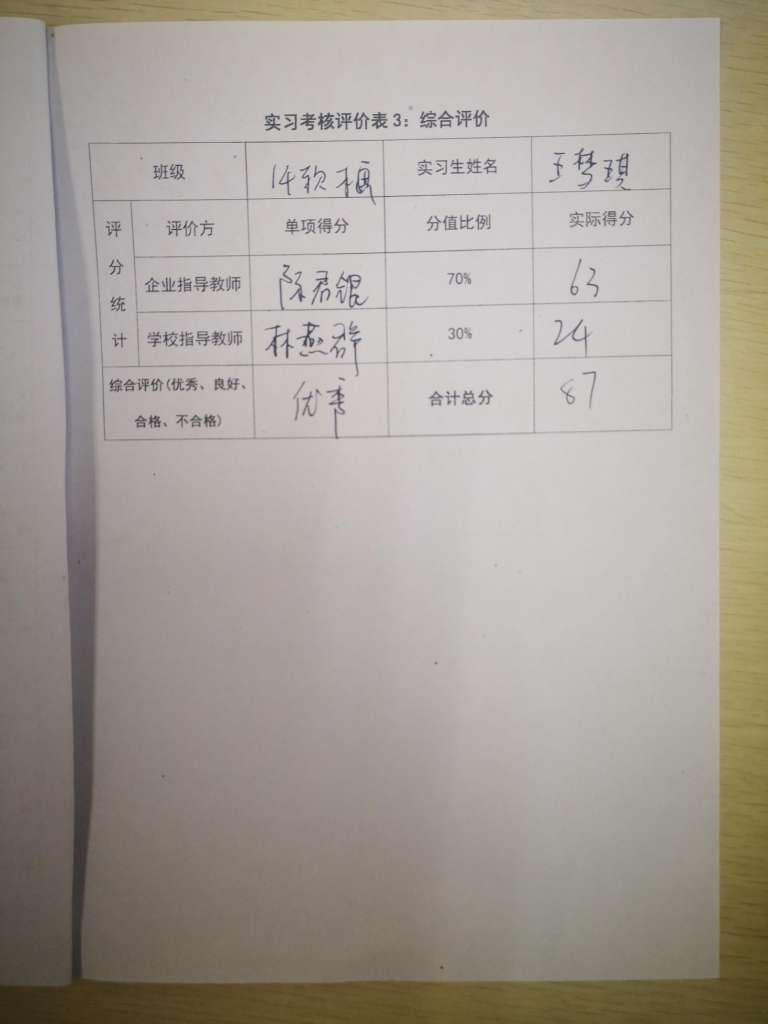 实习考核评价表 3：综合评价
班级 实习生姓名 王梦琪
评分统计 评价方 单项得分 分值比例 实际得分
企业指导教师 陈君锟 70% 63
学校指导教师 林燕群 30% 24
综合评价(优秀、良好、
合格、不合格) 优秀 合计总分 87